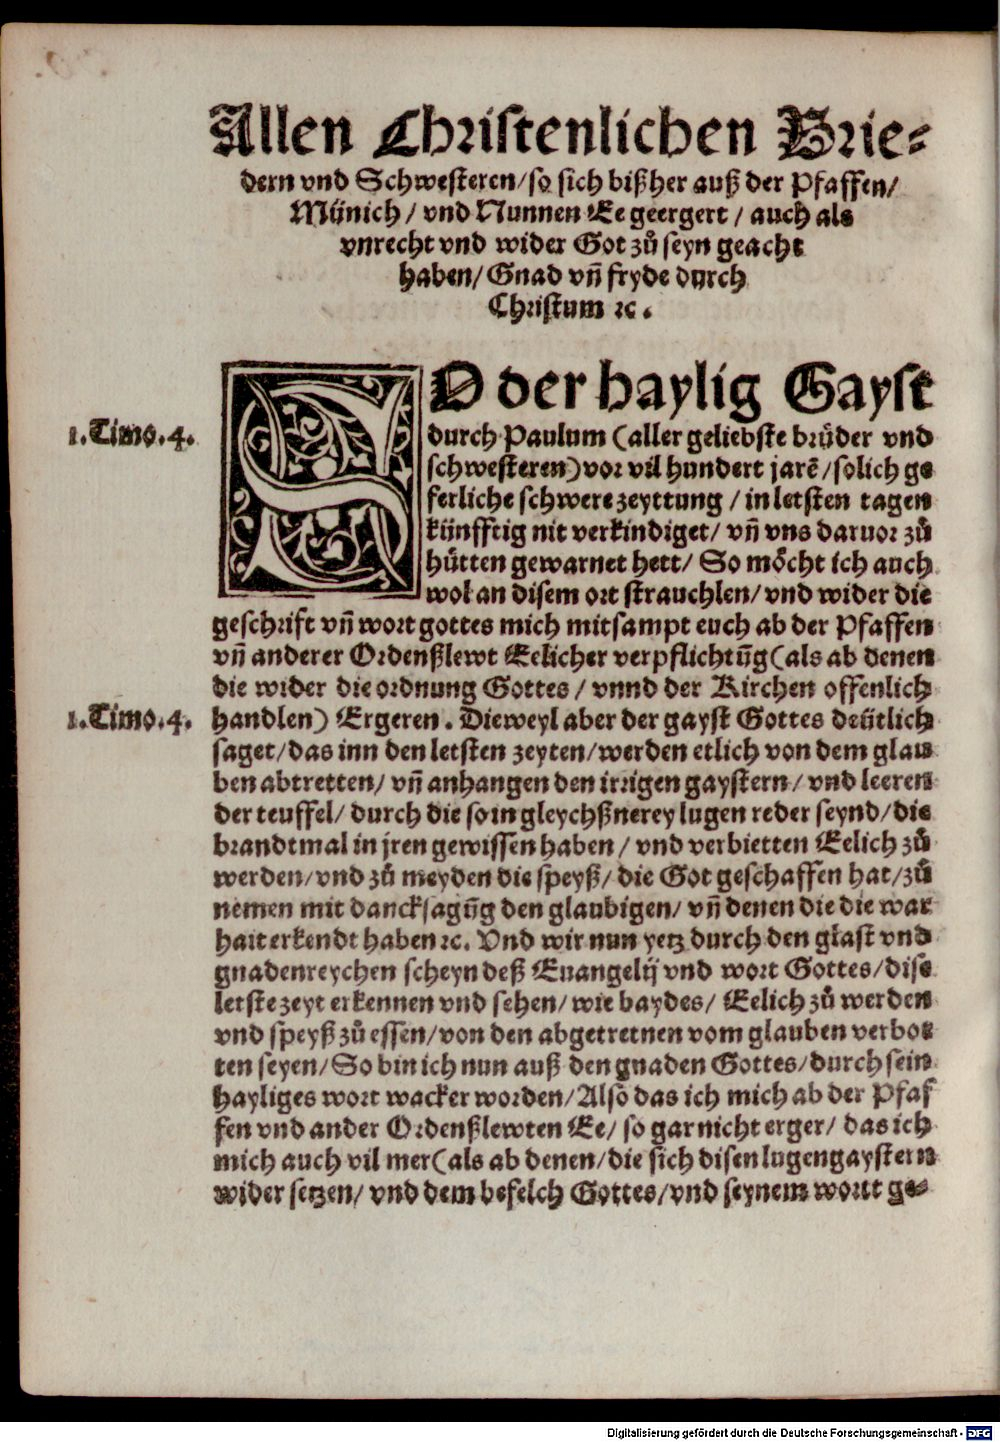 Allen Christenlichen Brie-
dern vnd Schwesteren/so sich bißher auß der Pfaffen/
Münich/ vnd Nunnen Ee geergert/ auch als
vnrecht vnd wider Got zů seyn geacht
haben/ Gnad vñ fryde durch
Christum ꝛc.
SO der haylig Gayst
1.Timo.4.
durch Paulum (aller geliebste brüder vnd
schwesteren) vor vil hundert jarẽ/solich ge
ferliche schwere zeyttung/in letsten tagen
künfftig nit verkindiget/ vñ vns daruor zů
hütten gewarnet hett/ So möcht ich auch
wol an disem ort strauchlen/ vnd wider die
geschrift vñ wort gottes mich mitsampt euch ab der Pfaffen
vñ anderer Ordenßlewt Eelicher verpflichtũg(als ab denen
die wider die ordnung Gottes/ vnnd der Kirchen offenlich
1.Timo.4.
handlen) Ergeren. Dieweyl aber der gayst Gottes deütlich
saget/das inn den letsten zeyten/werden etlich von dem glau
ben abtretten/ vñ anhangen den irrigen gaystern/ vnd leeren
der teuffel/ durch die so in gleychßnerey lugen reder seynd/die
brandtmal in jren gewissen haben/ vnd verbietten Eelich zů
werden/vnd zů meyden die speyß/ die Got geschaffen hat/zů
nemen mit dancksagũg den glaubigen/ vñ denen die die war
hait erkendt haben ꝛc. Vnd wir nun yetz durch den glast vnd
gnadenreychen scheyn deß Euangelij vnd wort Gottes/dise
letste zeyt erkennen vnd sehen/wie baydes/ Eelich zů werden
vnd speyß zů essen/von den abgetretnen vom glauben verbot
ten seyen/So bin ich nun auß den gnaden Gottes/durch sein
hayliges wort wacker worden/Also das ich mich ab der Pfaf
fen vnd ander Ordenßlewten Ee/ so gar nicht erger/ das ich
mich auch vil mer(als ab denen/die sich disen lugengaystern
wider setzen/ vnd dem befelch Gottes/vnd seynem wortt ge-
Digitalisierung gefördert durch die Deutsche Forschungsgemeinschaft - DFG